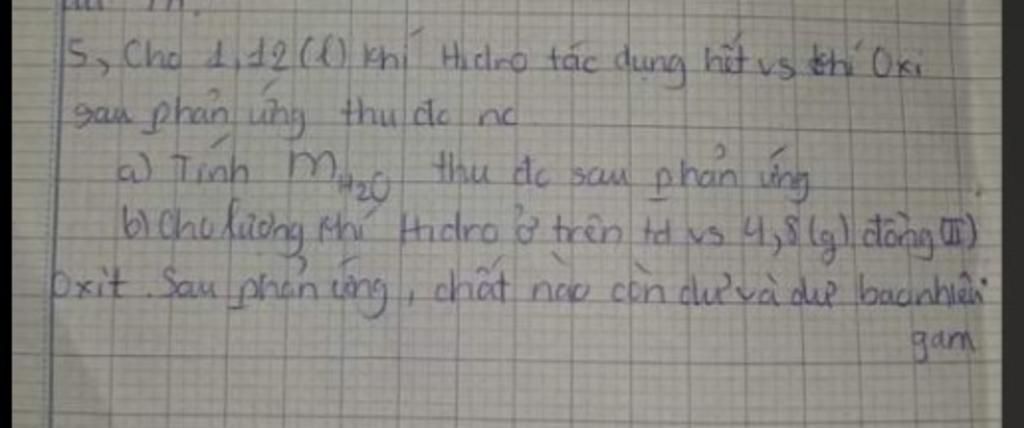 5, Cho 1,12 (l) khí Hidro tác dụng hết vs khí Oxi
sau phản ứng thu dc nc
a) Tính mH2O thu dc sau phản ứng
b) Cho lượng khí Hidro ở trên td vs 4,8 (g) đồng (II)
Oxit. Sau phản ứng, chất nào còn dư và dư bao nhiêu
gam